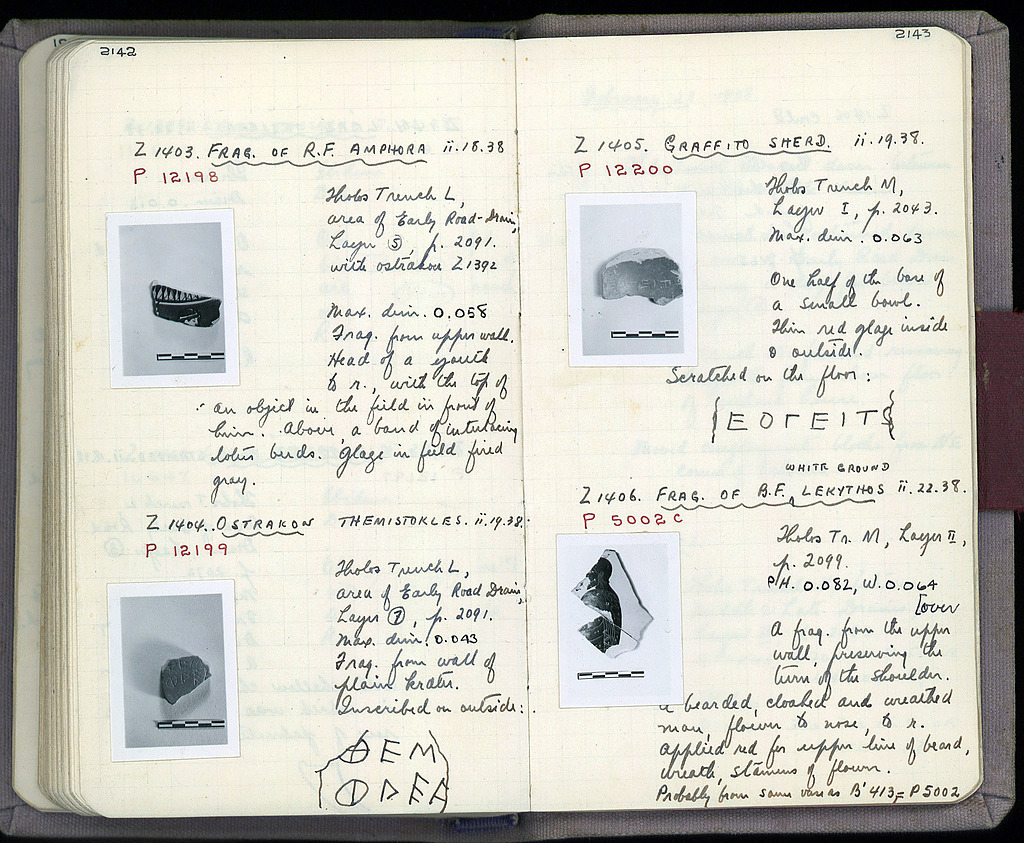 2142
Z 1403. FRAG. OF R.F. AMPHORA ii.18.38
P 12198
Tholos Trench L,
area of Early Road-Drain,
Layer 5, p. 2091.
with ostrakon Z1392
Max. dim. 0.058
Frag. from upper wall.
Head of a youth
to r., with the top of
an object in the field in front of
him. Above, a band of interlacing
lotus buds. Glaze in field fired
gray.
Z 1404. OSTRAKON THEMISTOKLES. ii.19.38.
P 12199
Tholos Trench L,
area of Early Road Drain,
Layer 7, p. 2091.
Max. dim. 0.043
Frag. from wall of
plain krater.
Inscribed on outside:
ΘEM
ΦPEA
2143
Z 1405. GRAFFITO SHERD. ii.19.38.
P 12200
Tholos Trench M,
Layer I, p. 2043.
Max. dim. 0.063
One half of the base of
a small bowl.
Thin red glaze inside
& outside.
Scratched on the floor:
{EOΓEITS}
WHITE GROUND
Z 1406. FRAG. OF B.F. ‸ LEKYTHOS ii.22.38.
P 5002 C
Tholos Tr. M, Layer II,
p. 2099.
P.H. 0.082, W. 0.064
[over
A frag. from the upper
wall, preserving the
turn of the shoulder.
A bearded, cloaked and wreathed
man, flower to nose, to r.
Applied red for upper line of beard,
wreath, stamens of flower.
Probably from same vase as B'413,= P5002